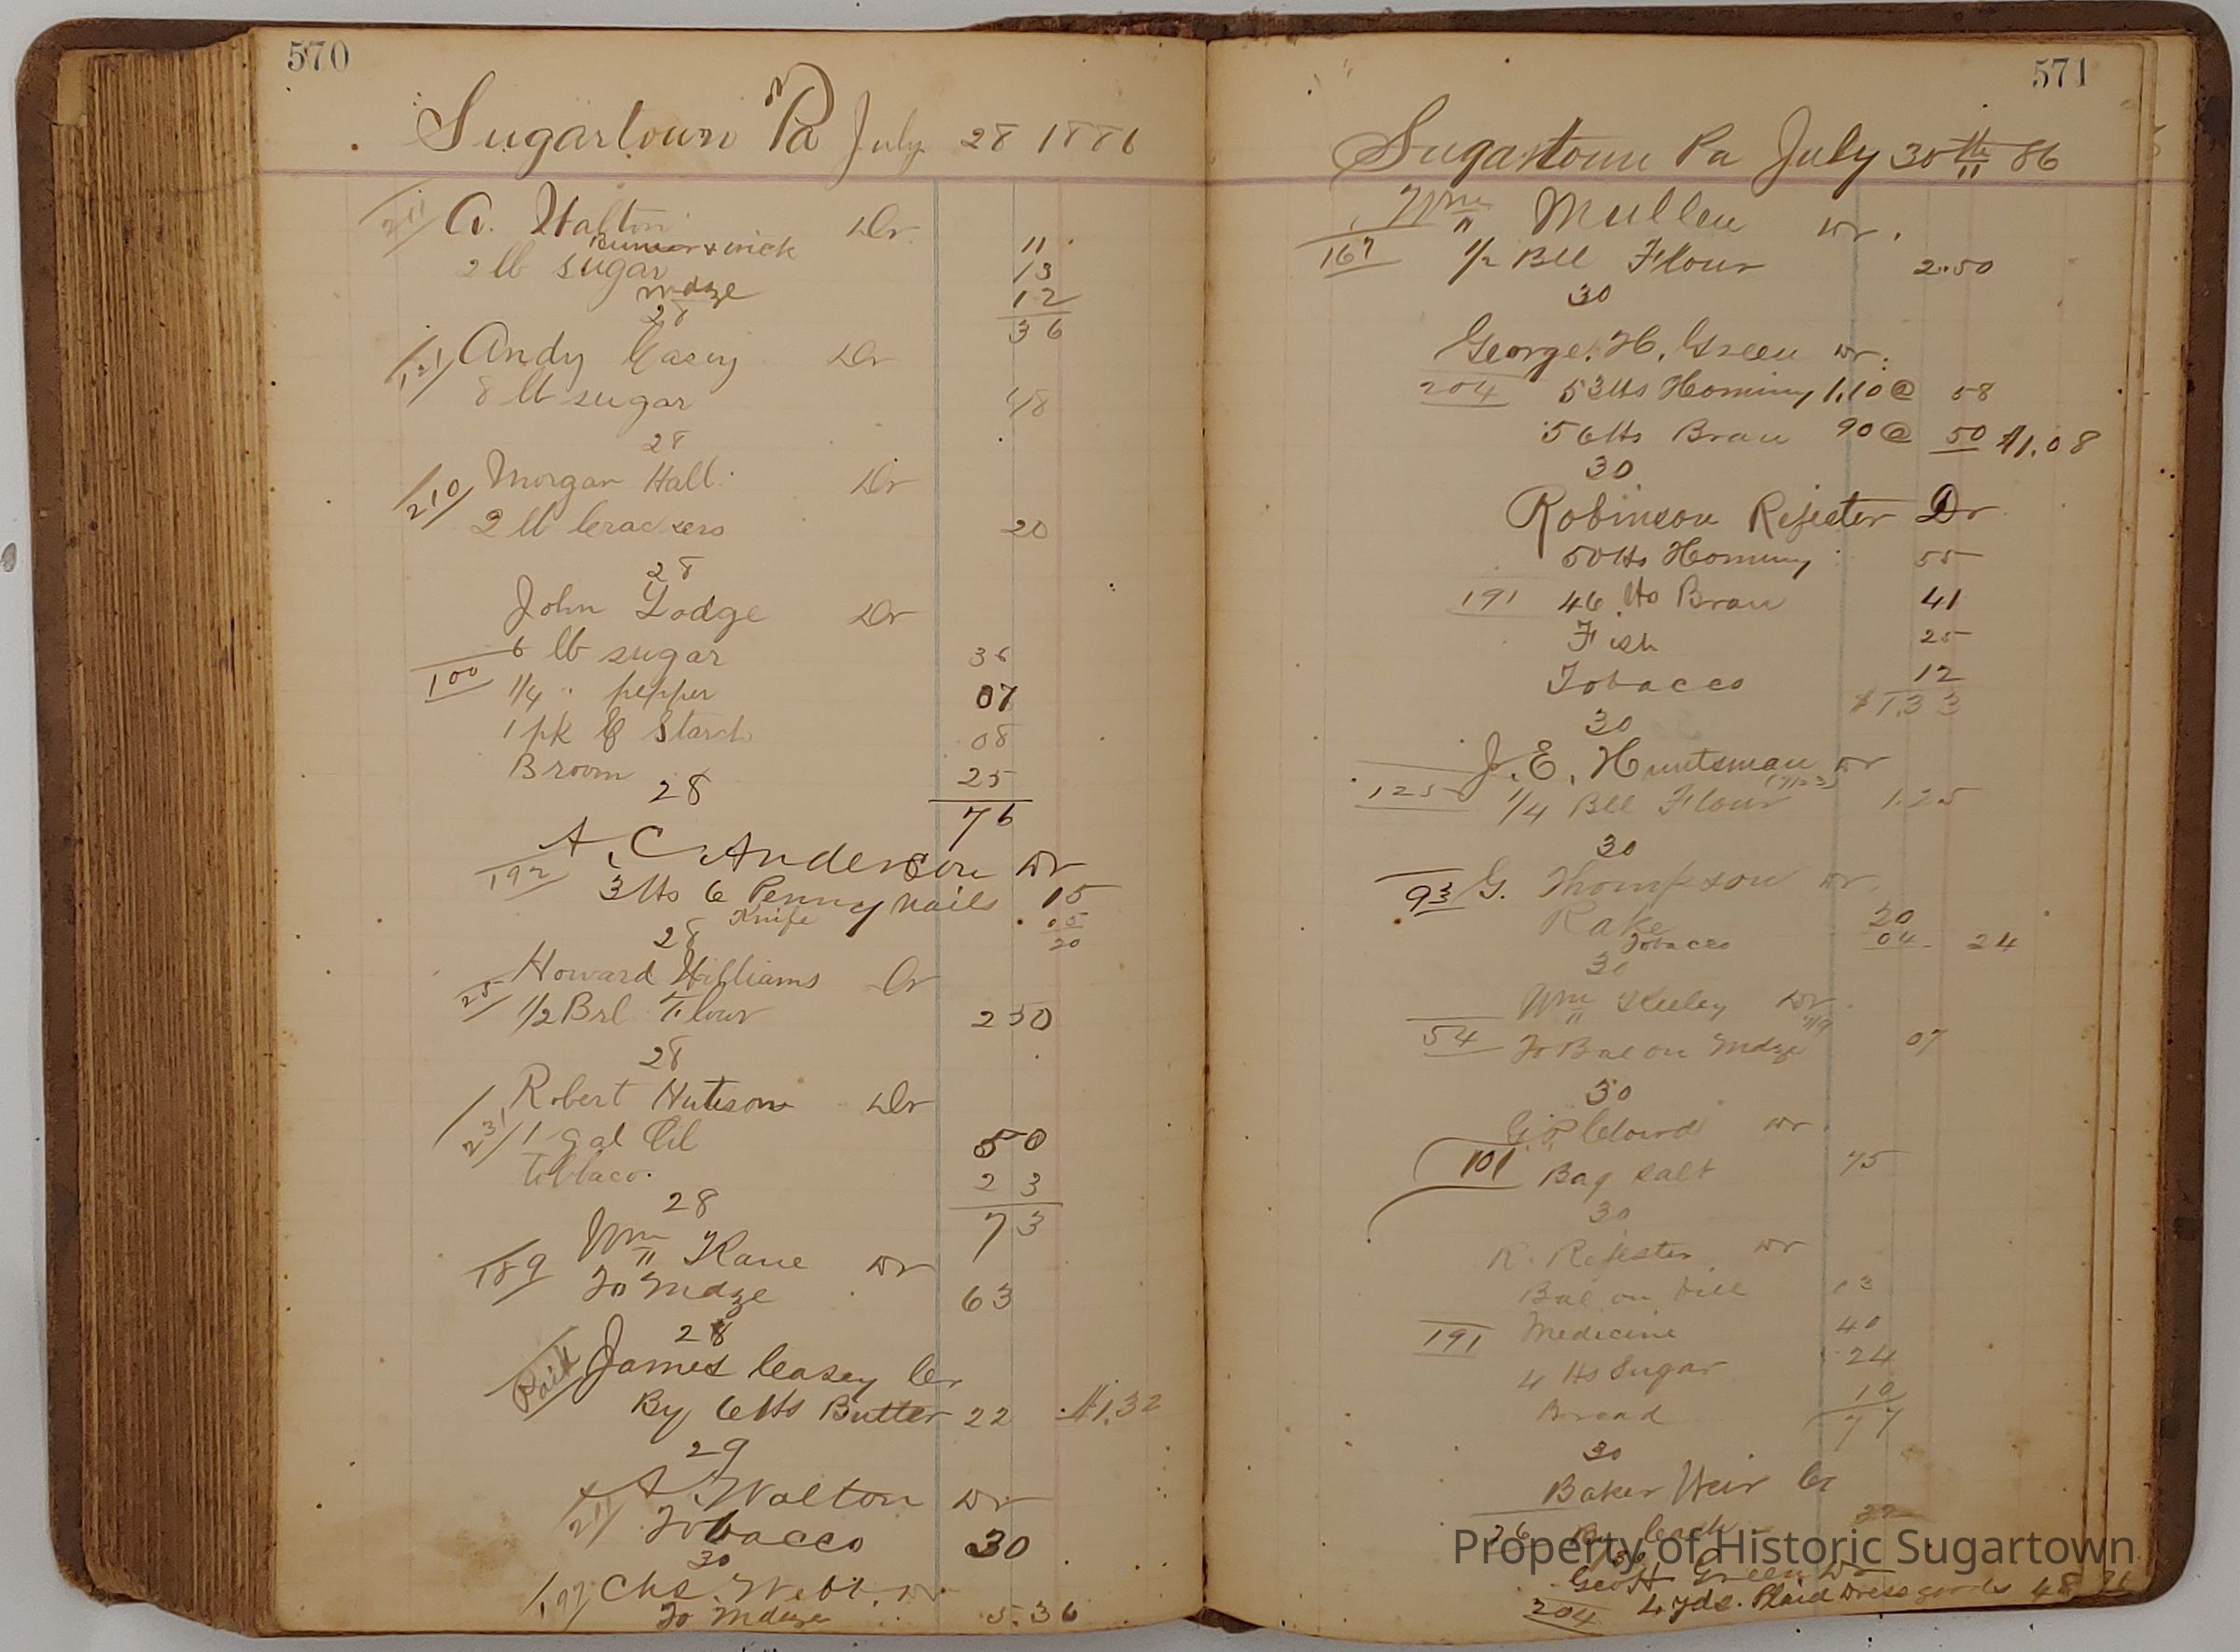 570
Sugartown Pa July 28 1886
211 A. Walton Dr
11
2 lb sugar 13
mdze 12
28 36
121 Andy Casey Dr
8 lb sugar 48
28
210 Morgan Hall Dr
2 lb Crackers 20
28
John Lodge Dr
6 lb sugar 36
100 1/4 " pepper 07
1 pk C Starch 08
Broom 25
28 76
A. C. Anderson Dr
192 3 lbs 6 Penny nails 15
Knife 05
28 20
Howard Williams Cr
25 1/2 Brl Flour 2 50
28
Robert Hutison Dr
231 1 gal Oil 50
tobbaco. 23
28 73
Wm Kane Dr
189 To Mdze 63
28
Paid James Casey Cr
By 6 lbs Butter 22 $1.32
29
A Walton Dr
211 Tobacco 30
30
197 Chs. Webb. Dr
To Mdze 5.36
571
Sugartown Pa July 30th 86
Wm Mullen Dr.
167 1/2 Bll Flour 2.50
30
George. H. Green Dr.
204 53 lbs Hominy 1.10 @ 58
56 lbs Bran 90 @ 50 $1.08
30
Robinson Rejester Dr
50 lbs Hominy 55
191 46 lbs Bran 41
Fish 25
Tobacco 12
$1.33
30
J. E. Huntsman Dr
125 1/4 Bll Flour 1.25
30
93 G. Thompson Dr.
Rake 20
Tobacco 04 24
30
Wm Keeley Dr.
54 To Bal on Mdze 07
30
Cloud Dr.
101 Bag salt 75
30
R. Rejester Dr
Bal on bill 03
191 Medicine 40
4 lbs Sugar 24
Bread 10
77
30
Baker Weir Cr
26 By Cash
Geo H Green Dr
204 4 yds. Plaid Dress goods 48
Property of Historic Sugartown